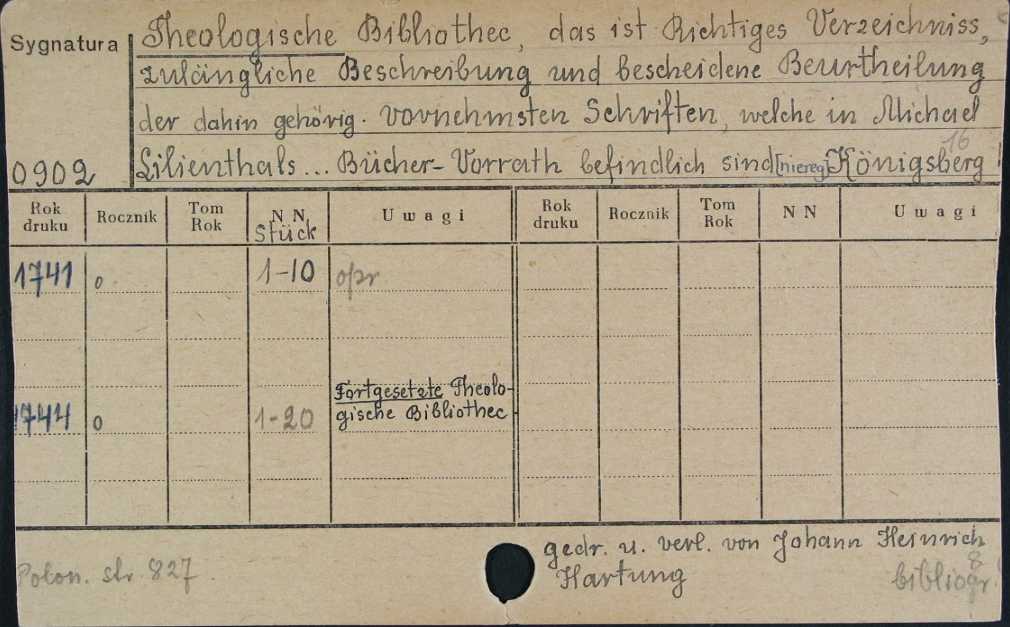 Sygnatura
Theologische Bibliothec, das ist Richtiges Verzeichniss,
zulängliche Beschreibung und bescheidene Beurtheilung
der dahin gehörig. vornehmsten Schriften, welche in Michael
16
0902 Lilienthals... Bücher-Vorrath befindlich sind [niereg] Königsberg
Rok druku Rocznik Tom Rok N N Stück Uwagi Rok druku Rocznik Tom Rok N N Uwagi
1741 0 1-10 opr
Fortgesetzte Theolo-
1744 0 1-20 gische Bibliothec
gedr. u. verl. von Johann Heinrich
Hartung
Polon. str. 827
8
bibliogr.